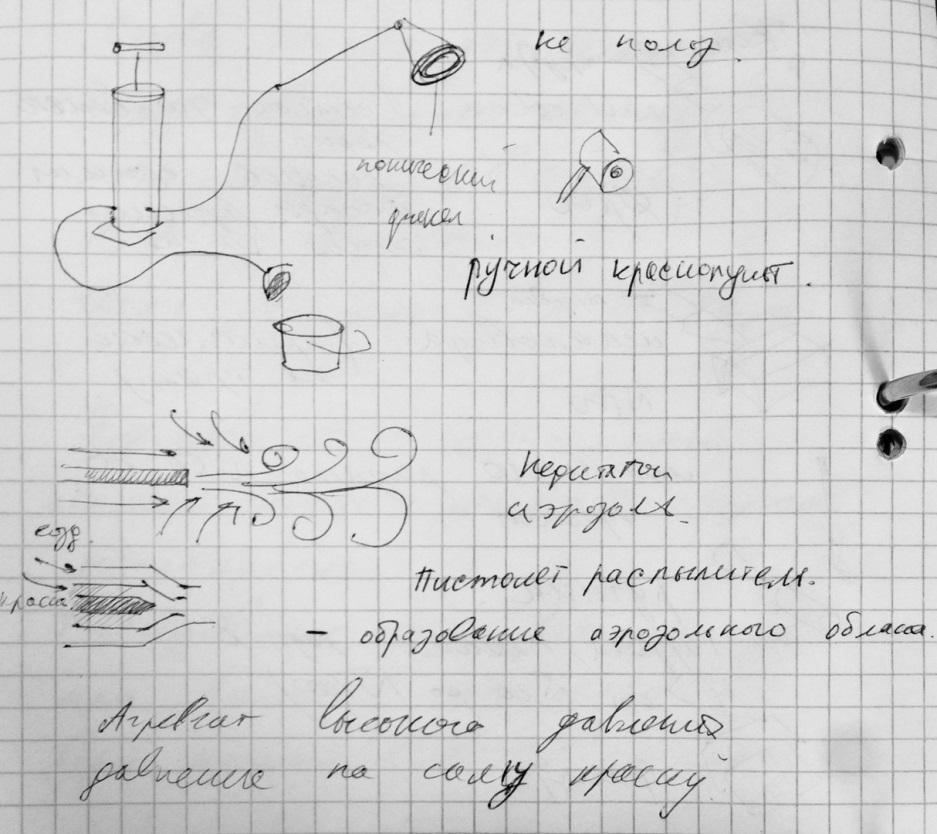 не полоз.
конический
факел
ручной краскопульт.
Недостаток
аэрозоль.
возд.
краска
Пистолет распылитель.
- образование аэрозольного облака.
Агрегат высокого давления
давление на саму краску.